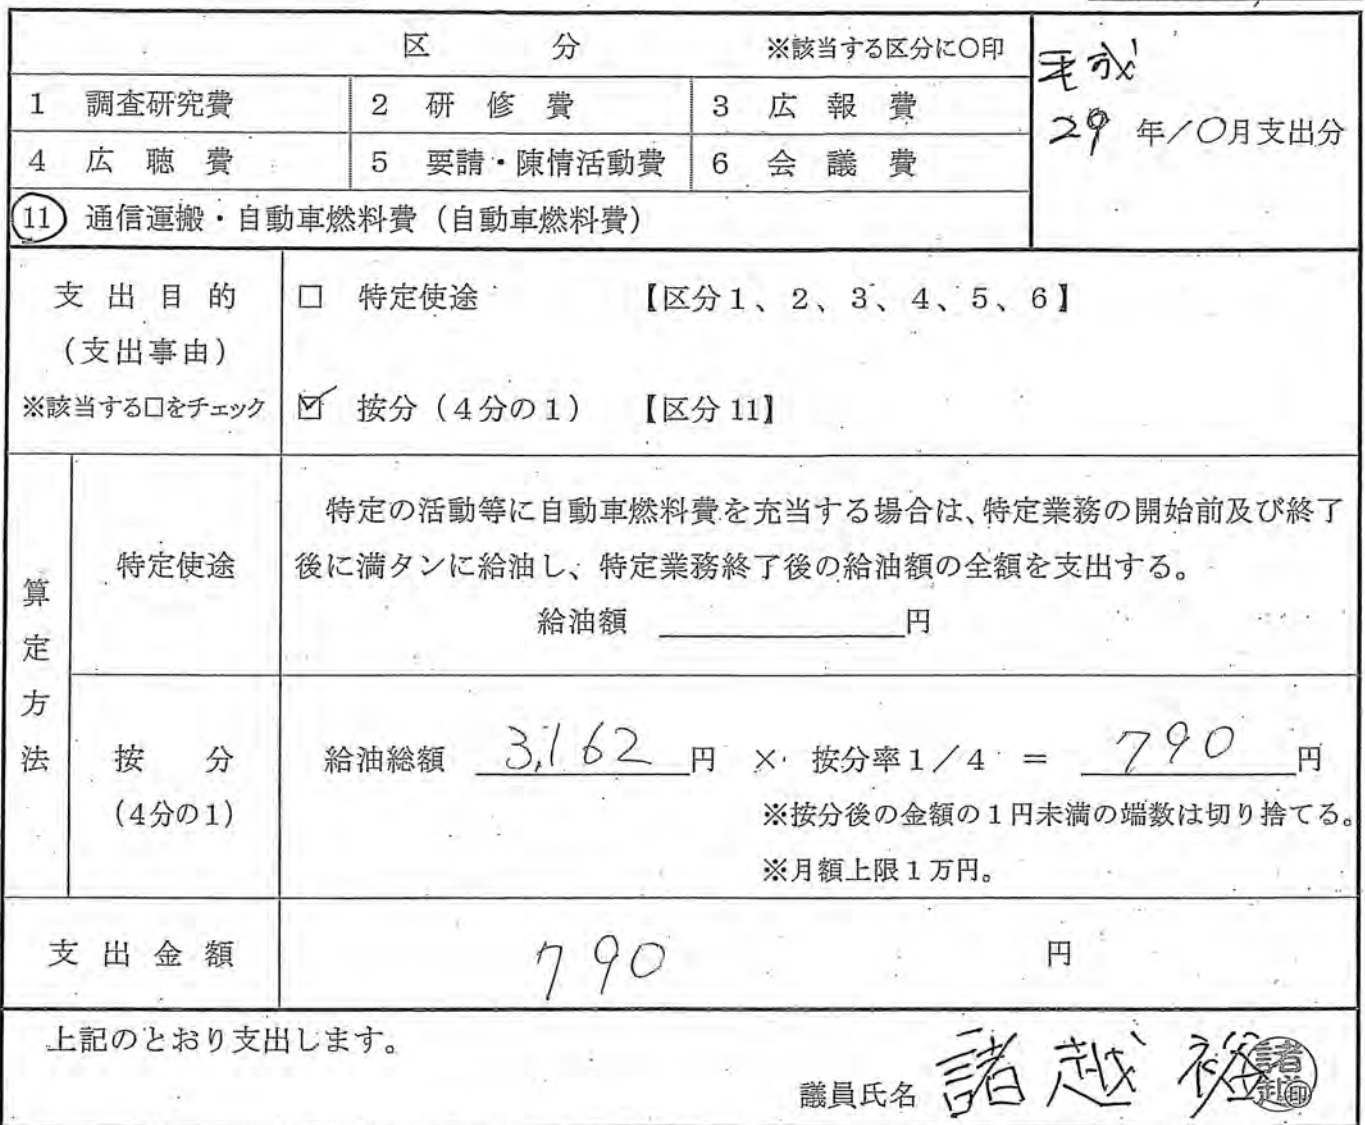 区 分 ※該当する区分に〇印
平成
29年10月支出分
1 調査研究費 2 研修費 3 広報費
4 広聴費 5 要請・陳情活動費 6 会議費
11 通信運搬・自動車燃料費（自動車燃料費）
支出目的
（支出事由）
※該当する□をチェック
□ 特定使途 【区分1、2、3、4、5、6】
☑ 按分（4分の1） 【区分11】
算定方法
特定使途
特定の活動等に自動車燃料費を充当する場合は、特定業務の開始前及び終了
後に満タンに給油し、特定業務終了後の給油額の全額を支出する。
給油額 円
按分
（4分の1）
給油総額 3,162 円 × 按分率1／4 ＝ 790 円
※按分後の金額の1円未満の端数は切り捨てる。
※月額上限1万円。
支出金額 790 円
上記のとおり支出します。
議員氏名 諸越 裕
諸越印